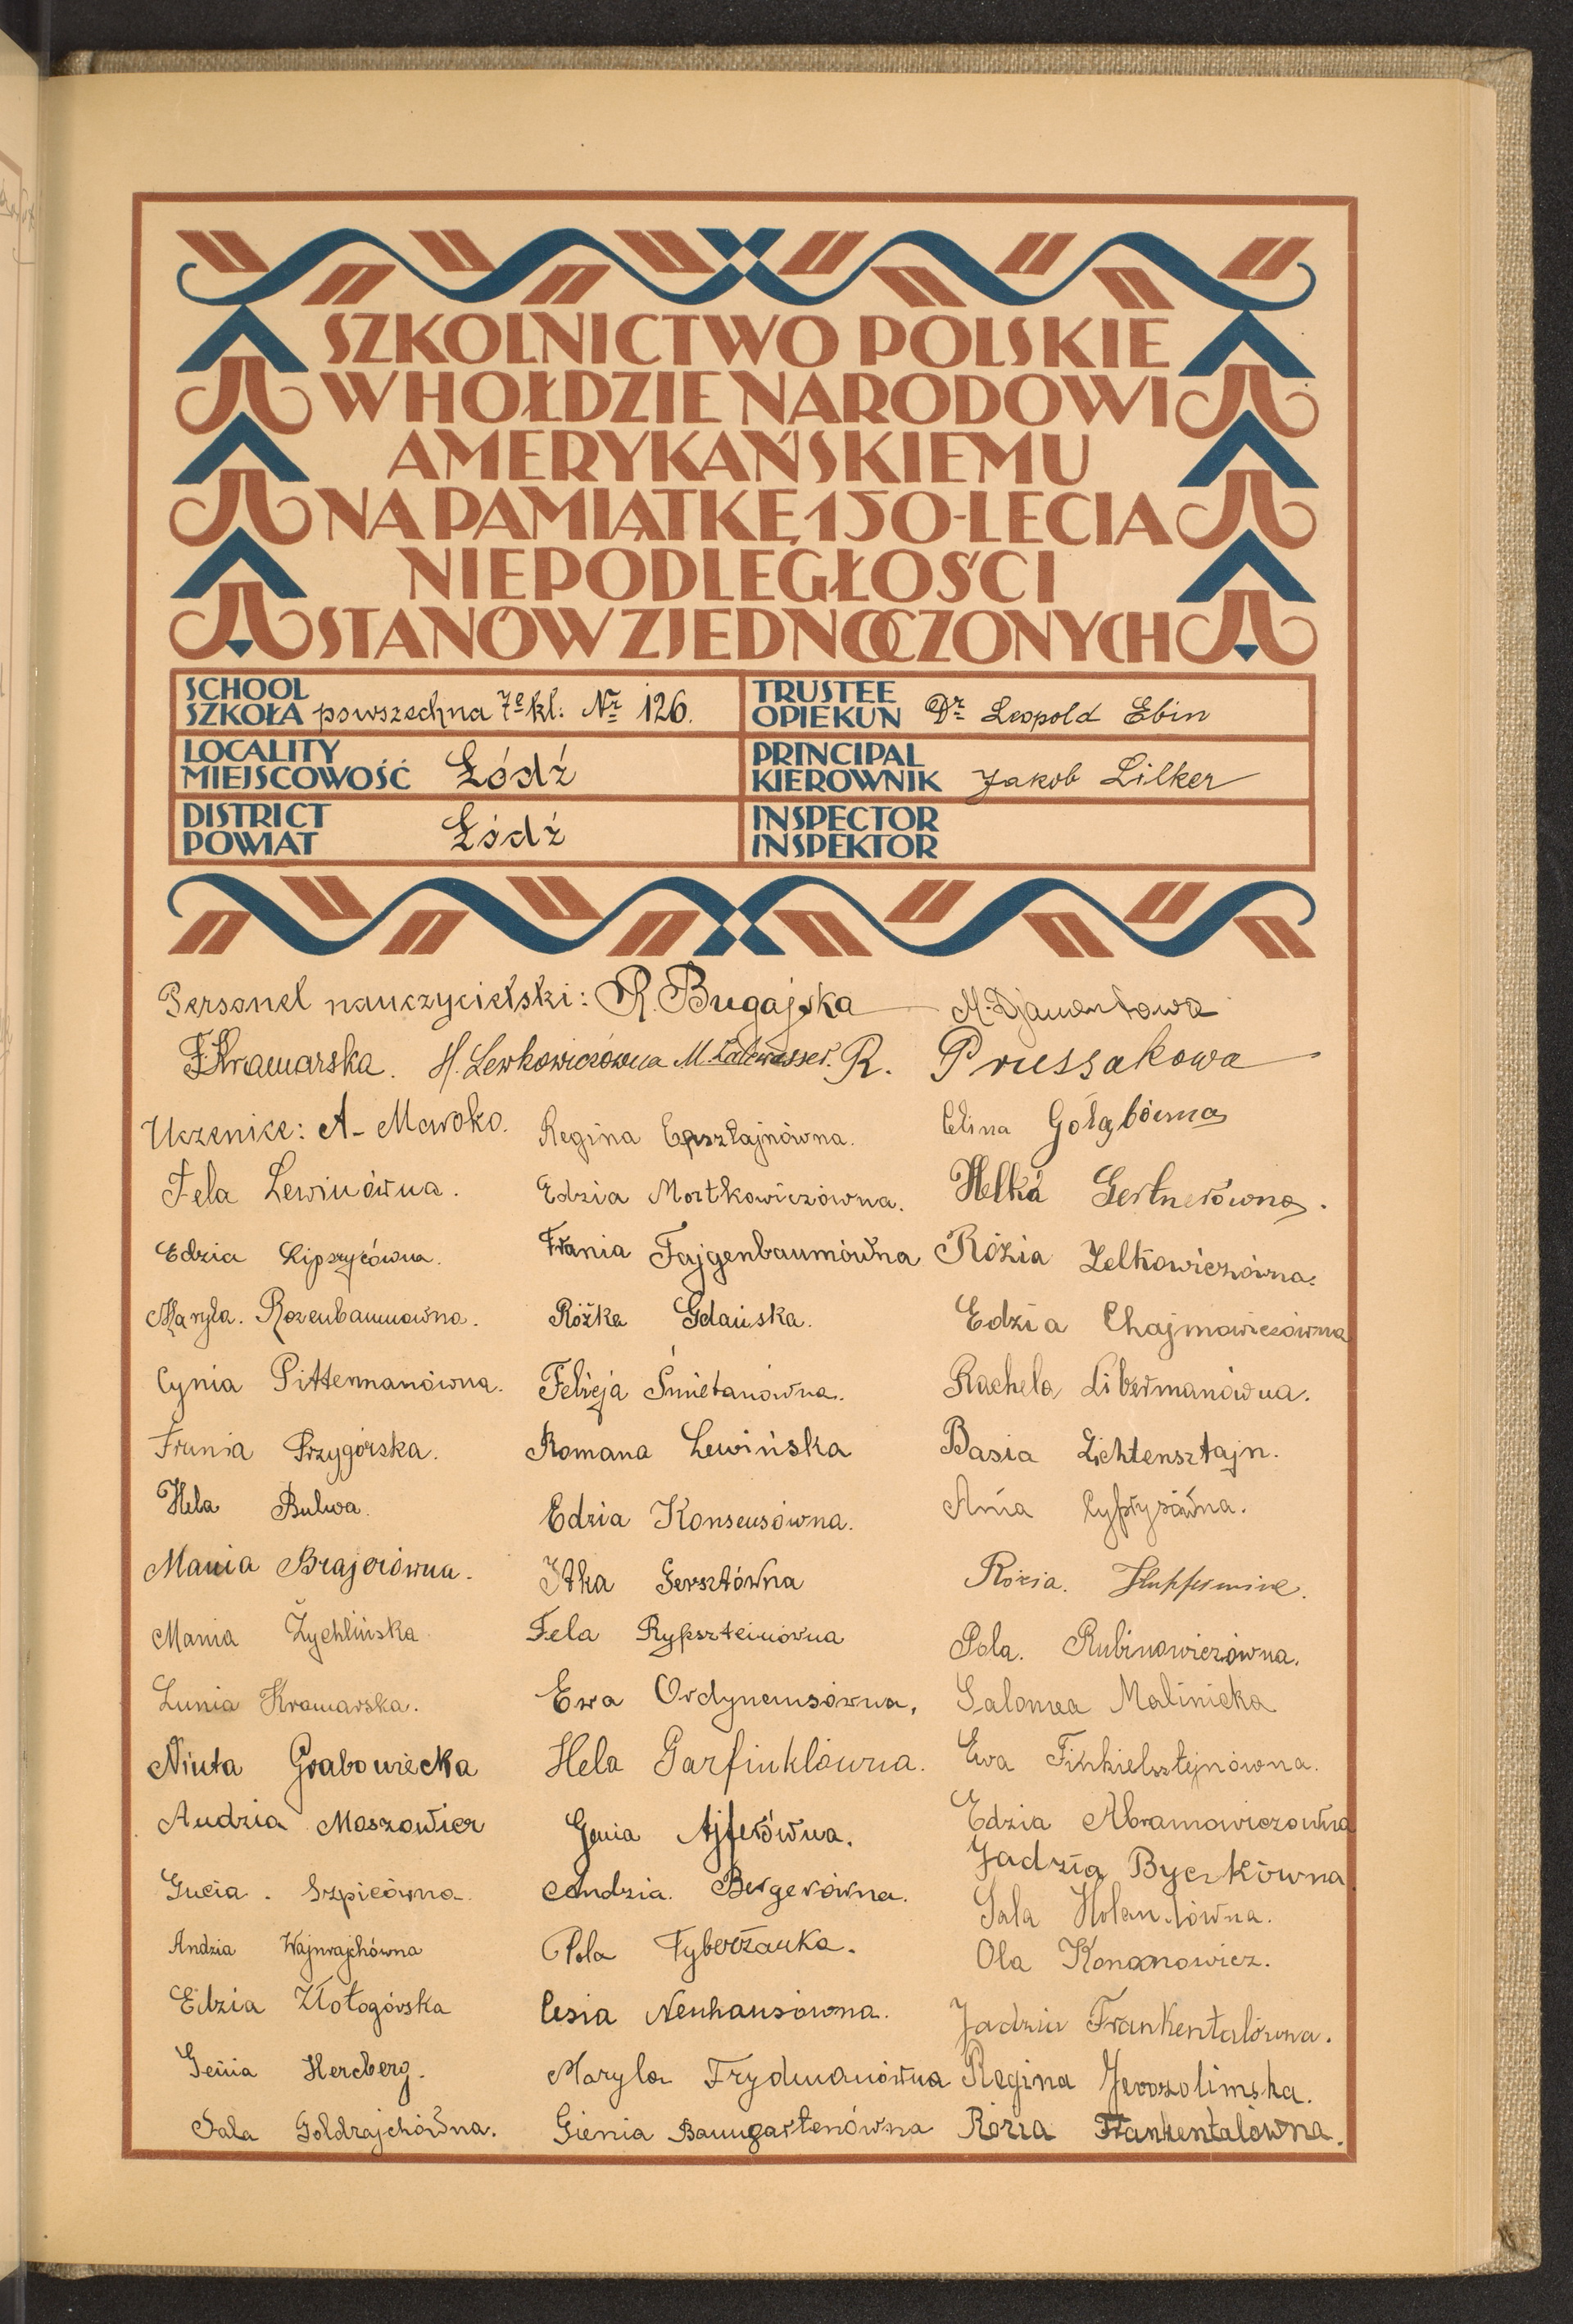 SZKOLNICTWO POLSKIE
W HOŁDZIE NARODOWI
AMERYKAŃSKIEMU
NA PAMIĄTKĘ 150-LECIA
NIEPODLEGŁOŚCI
STANÓW ZJEDNOCZONYCH
SCHOOL
SZKOŁA powszechna 7e kl. Nr 126.
TRUSTEE
OPIEKUN Dr Leopold Ebin
LOCALITY
MIEJSCOWOŚĆ Łódź
PRINCIPAL
KIEROWNIK Jakob Lilker
DISTRICT
POWIAT Łódź
INSPECTOR
INSPEKTOR
Personel nauczycielski: R. Bugajska M. Djamentowa
F. Kramarska. H. Lewkowiczówna M. R. Prussakowa
Uczenice: A. Maroko. Regina Epsztajnówna. Celina Gołąbówna
Fela Lewinówna. Edzia Mortkowiczówna. Helka Gertnerówna.
Edzia Lipszycówna. Frania Fajgenbaumówna Rózia Zelkowiczówna.
Maryla. Rozenbaumówna. Rózka Gdańska. Edzia Chajmowiczówna
Cynia Pittermanówna. Felicja Śmietanówna. Rachela Libermanówna.
Frunia Przygórska. Romana Lewińska Basia Lichtensztajn.
Hela Bulwa. Edzia Konsensówna. Ania
Mania Brajerówna. Itka Gersztówna Rózia.
Mania Żychlińska Fela Rypszteinówna Pola. Rubinowiczówna.
Lunia Kramarska. Ewa Ordynansówna. Salomea Malinicka
Niuta Grabowiecka Hela Garfinklówna. Ewa Finkielsztejnówna.
Andzia Moszowicz Genia Ajferówna. Edzia Abramowiczówna
Gucia. Szpicówna. Andzia. Bergerówna. Jadzia Byczkówna
Andzia Wajnrajchówna Pola Fyberżanka. Sala Holandówna.
Edzia Złotogórska Cesia Neuhausówna. Ola Kononowicz.
Genia Hercberg. Maryla Frydmanówna Jadzia Frankentalówna.
Sala Goldrajchówna. Gienia Baumgartenówna Regina Jerozolimska.
Rózia Frankentalówna.